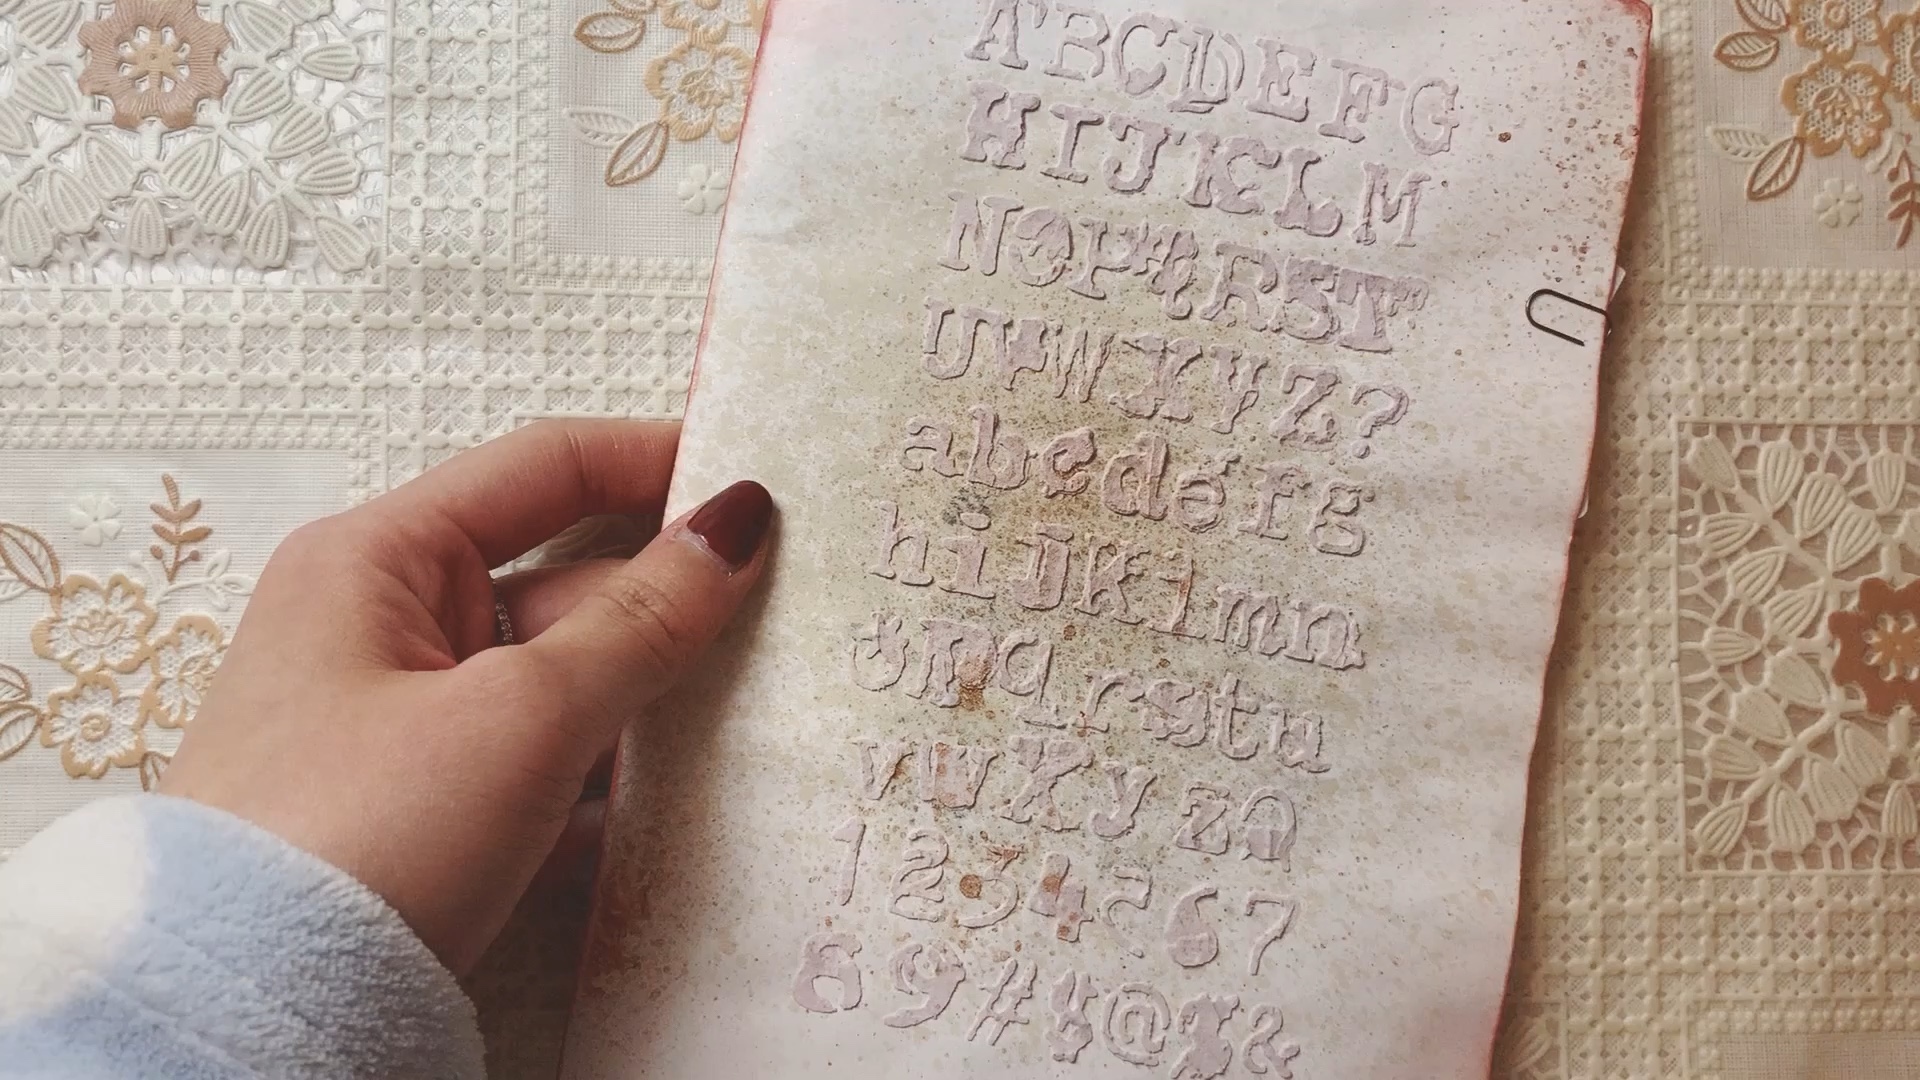 ABCDEFG
HIJKLM
NOP&RST
UVWXYZ?
abcdefg
hijklmn
opqrstu
vwxyz
1234567
89#$@ &